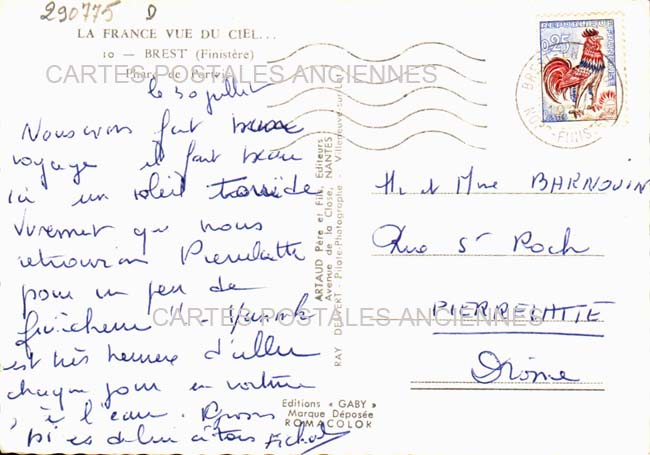 290775 D
LA FRANCE VUE DU CIEL...
10 - BREST (Finistère)
Phare de
CARTES POSTALES ANCIENNES
le 30 juillet
Nous avons fait
voyage il fait beau
ici un soleil
Vivement que nous
retrouvions Pierrelatte
pour un peu de
fraicheur !! -
est très heureux d'aller
chaque jour en voiture
à l'eau.
à tous
ARTAUD Père et Fils, Editeurs
Avenue de la Close, NANTES
RAY DELVERT - Pilote-Photographe - Villeneuve-sur-Lot
Editions « GABY »
Marque Déposée
ROMACOLOR
0,25
M. et Mme BARNOUIN
Rue St Roch
CARTES POSTALES ANCIENNES
PIERRELATTE
Drôme